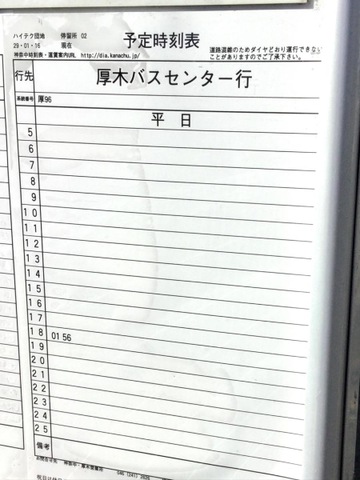 ハイテク団地 停留所 02
29・01・16 現在
予定時刻表
道路混雑のためダイヤどおり運行できない
ことがありますのでご了承下さい。
神奈中時刻表・運賃案内URL http://dia.kanachu.jp/
行先 厚木バスセンター行
系統番号 厚96
平 日
5
6
7
8
9
10
11
12
13
14
15
16
17
18 01 56
19
20
21
22
23
24
25
備考
お問合せ先 神奈中・厚木営業所